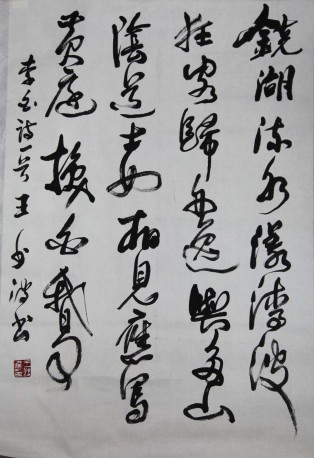 鏡湖流水漾清波
狂客歸舟逸興多山
陰道士如相見應寫
黄庭換白鵞
李白詩一首王少波书